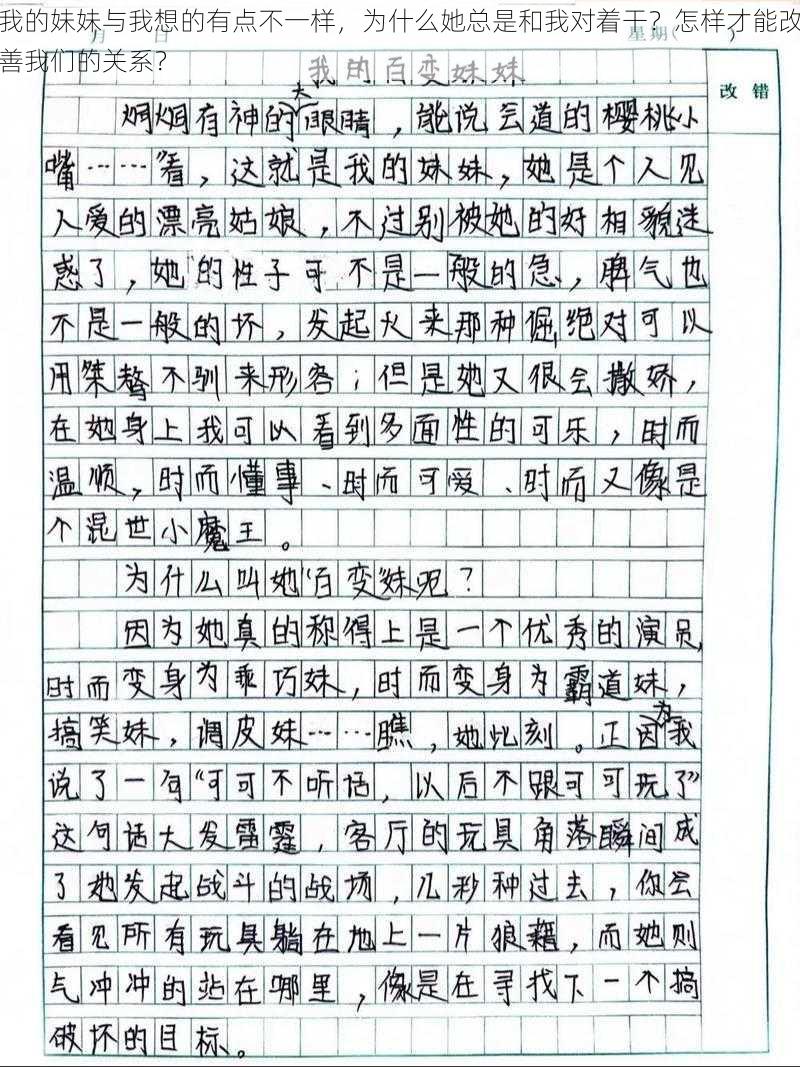 我的妹妹与我想的有点不一样，为什么她总是和我对着干？怎样才能改
善我们的关系？
月 日 星期( )
我的百变妹妹
改 错
炯炯有神的大眼睛，能说会道的樱桃小
嘴……看，这就是我的妹妹，她是个人见
人爱的漂亮姑娘，不过别被她的好相貌迷
惑了，她的性子可不是一般的急，脾气也
不是一般的坏，发起火来那种倔，绝对可以
用桀骜不驯来形容；但是她又很会撒娇，
在她身上我可以看到多面性的可乐，时而
温顺，时而懂事、时而可爱、时而又像是
个混世小魔王。
为什么叫她“百变”妹呢？
因为她真的称得上是一个优秀的演员，
时而变身为乖巧妹，时而变身为霸道妹，
搞笑妹，调皮妹……瞧，她此刻。正因为我
说了一句“可可不听话，以后不跟可可玩了”
这句话大发雷霆，客厅的玩具角落瞬间成
了她发起战斗的战场，几秒种过去，你会
看见所有玩具躺在地上一片狼藉，而她则
气冲冲的站在哪里，像是在寻找下一个搞
破坏的目标。